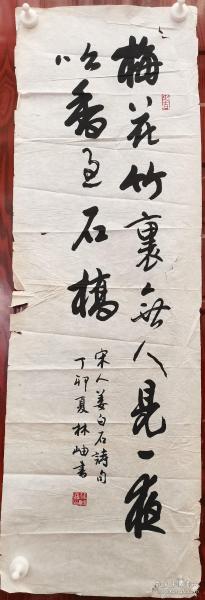 梅花竹裏無人見一夜
吹香過石橋
宋人姜白石詩句
丁卯夏林岫書